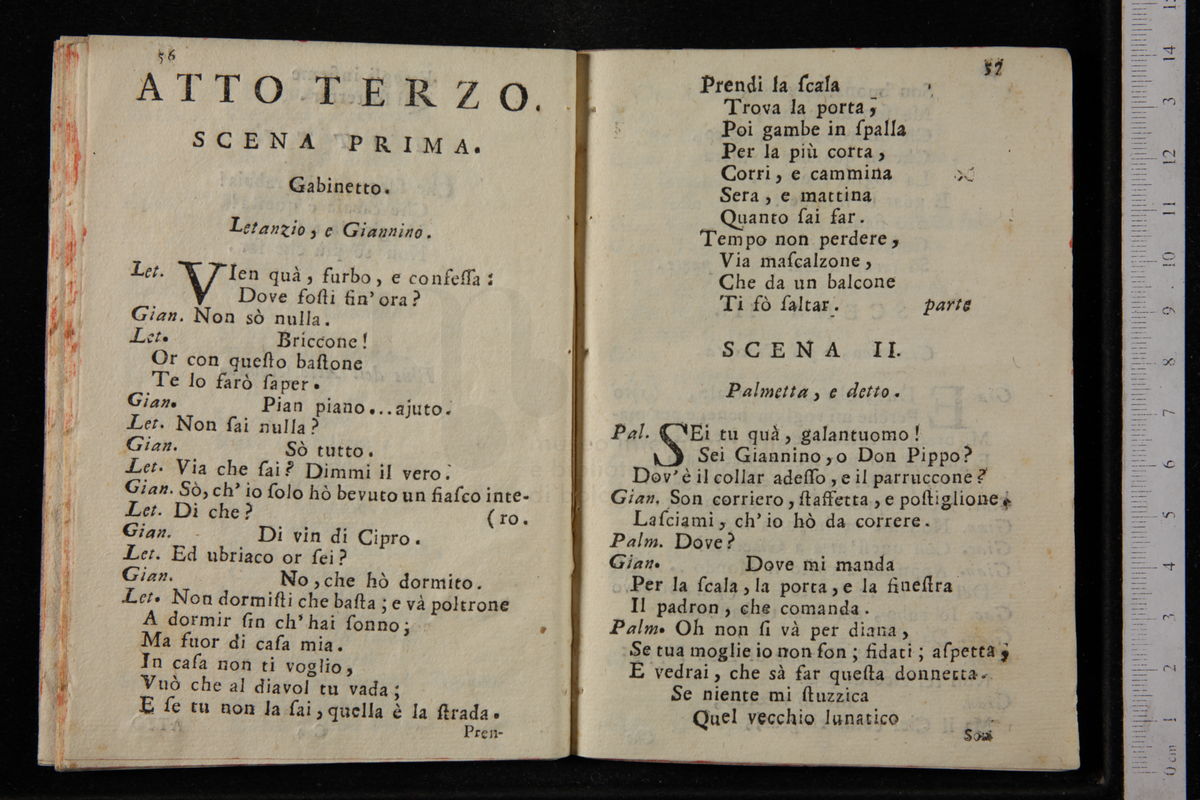 56
ATTO TERZO.
SCENA PRIMA.
Gabinetto.
Letanzio, e Giannino.
Let. VIen quà, furbo, e confeſſa:
Dove foſti fin' ora?
Gian. Non sò nulla.
Let. Briccone!
Or con queſto baſtone
Te lo farò ſaper.
Gian. Pian piano...ajuto.
Let. Non ſai nulla?
Gian. Sò tutto.
Let. Via che ſai? Dimmi il vero.
Gian. Sò, ch' io ſolo hò bevuto un fiaſco inte-
Let. Di che? (ro.
Gian. Di vin di Cipro.
Let. Ed ubriaco or ſei?
Gian. No, che hò dormito.
Let. Non dormiſti che baſta; e và poltrone
A dormir fin ch' hai ſonno;
Ma fuor di caſa mia.
In caſa non ti voglio,
Vuò che al diavol tu vada;
E ſe tu non la ſai, quella è la ſtrada.
Pren-
57
Prendi la ſcala
Trova la porta,
Poi gambe in ſpalla
Per la più corta,
Corri, e cammina
Sera, e mattina
Quanto ſai far.
Tempo non perdere,
Via maſcalzone,
Che da un balcone
Ti fò ſaltar. parte
SCENA II.
Palmetta, e detto.
Pal. SEi tu quà, galantuomo!
Sei Giannino, o Don Pippo?
Dov' è il collar adeſſo, e il parruccone?
Gian. Son corriero, ſtaffetta, e poſtiglione.
Laſciami, ch' io hò da correre.
Palm. Dove?
Gian. Dove mi manda
Per la ſcala, la porta, e la fineſtra
Il padron, che comanda.
Palm. Oh non ſi và per diana,
Se tua moglie io non ſon; fidati; aſpetta;
E vedrai, che sà far queſta donnetta.
Se niente mi ſtuzzica
Quel vecchio lunatico
Son